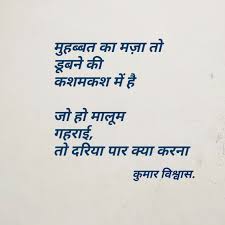 मुहब्बत का मज़ा तो
डूबने की
कशमकश में है
जो हो मालूम
गहराई,
तो दरिया पार क्या करना
कुमार विश्वास.